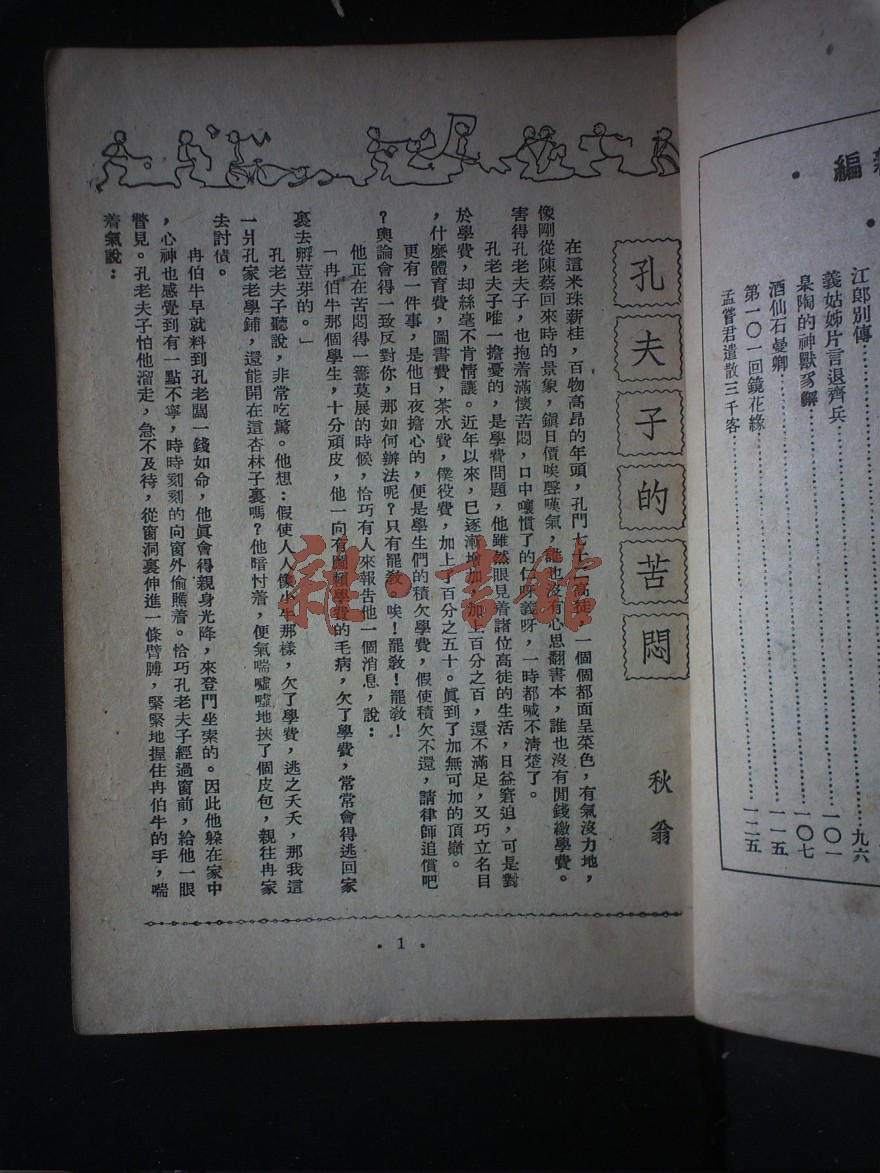 新編
江郎別傳……九六
義姑姊片言退齊兵……一〇一
臯陶的神獸豸獬……一〇七
酒仙石曼卿……一一五
第一〇一回鏡花緣……一二五
孟嘗君遣散三千客
孔夫子的苦悶
秋翁
在這米珠薪桂,百物高昂的年頭,孔門七十二高徒,一個個都面呈菜色,有氣沒力地,
像剛從陳蔡回來時的景象,鎭日價唉聲嘆氣,誰也沒有心思翻書本,誰也沒有閒錢繳學費。
害得孔老夫子,也抱着滿懷苦悶,口中嚷慣了的仁呀義呀,一時都喊不清楚了。
孔老夫子唯一擔憂的,是學費問題,他雖然眼見着諸位高徒的生活,日益窘迫,可是對
於學費,却絲毫不肯情讓。近年以來,已逐漸增加,加上百分之百,還不滿足,又巧立名目
,什麽體育費,圖書費,茶水費,僕役費,加上了百分之五十。眞到了加無可加的頂巔。
更有一件事,是他日夜擔心的,便是學生們的積欠學費,假使積欠不還,請律師追償吧
?輿論會得一致反對你,那如何辦法呢?只有罷敎,唉!罷敎!
他正在苦悶得一籌莫展的時候,恰巧有人來報告他一個消息,說:
「冉伯牛那個學生,十分頑皮,他一向有圖賴學費的毛病,欠了學費,常常會得逃回家
裏去孵荳芽的。」
孔老夫子聽說,非常吃驚。他想:假使人人像少牛那樣,欠了學費,逃之夭夭,那我這
一爿孔家老學鋪,還能開在這杏林子裏嗎?他暗忖着,便氣喘噓噓地挾了個皮包,親往冉家
去討債。
冉伯牛早就料到孔老闆一錢如命,他眞會得親身光降,來登門坐索的。因此他躱在家中
,心神也感覺到有一點不寧,時時刻刻的向窗外偷瞧着。恰巧孔老夫子經過窗前,給他一眼
瞥見。孔老夫子怕他溜走,急不及待,從窗洞裏伸進一條臂膊,緊緊地握住冉伯牛的手,喘
着氣說:
•1•
雜·書館